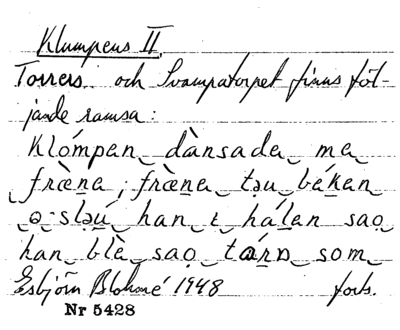 Klumpens II.
Torrers och Svampatorpet finns föl-
jande ramsa:
Klómpen dànsade me
fræ̀ne, fræ̀ne təu béken
ə sləú han ɛ hálen sao
han blè sao tárɒ som
Esbjörn Blohmé 1948 forts.
Nr 5428